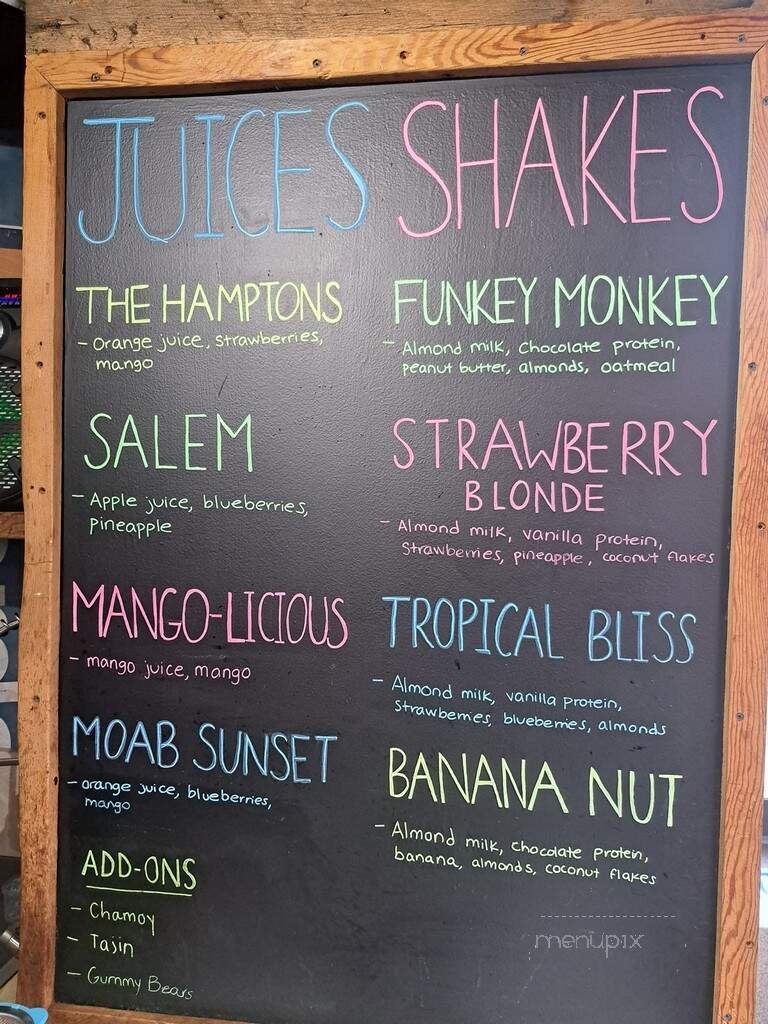 JUICES
THE HAMPTONS
- Orange juice, strawberries,
mango
SALEM
- Apple juice, blueberries,
pineapple
MANGO-LICIOUS
- mango juice, mango
MOAB SUNSET
- orange juice, blueberries,
mango
ADD-ONS
- Chamoy
- Tajin
- Gummy Bears
SHAKES
FUNKEY MONKEY
- Almond milk, chocolate protein,
peanut butter, almonds, oatmeal
STRAWBERRY
BLONDE
- Almond milk, vanilla protein,
Strawberries, pineapple, coconut flakes
TROPICAL BLISS
- Almond milk, vanilla protein,
strawberries, blueberries, almonds
BANANA NUT
- Almond milk, chocolate protein,
banana, almonds, coconut flakes
menupix